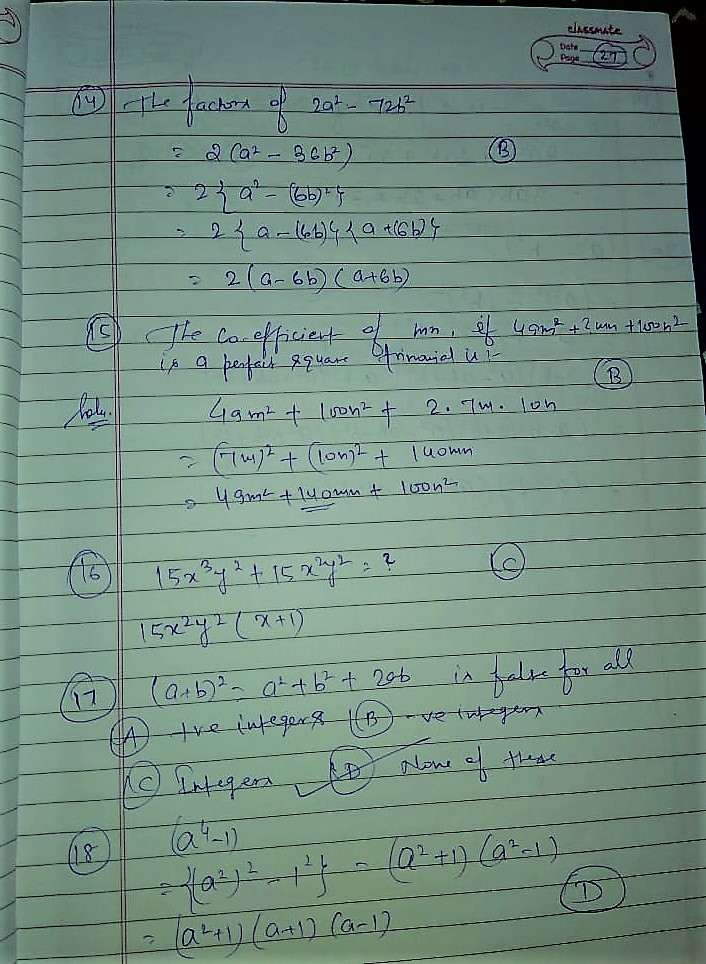 classmate
Date
Page 27
(14) The factors of 2a² - 72b²
= 2(a² - 36b²) (B)
= 2{a² - (6b)²}
= 2{a-(6b)}{a+(6b)}
= 2(a-6b)(a+6b)
(15) The co-efficient of mn, if 49m² + ?mn + 100n²
is a perfait square is :- (B)
Soln. 49m² + 100n² + 2.7m.10n
= (7m)² + (10n)² + 140mn
= 49m² + 140mn + 100n²
(16) 15x³y² + 15x²y² = ? (C)
15x²y²(x+1)
(17) (a+b)² = a² + b² + 2ab is false for all
(A) +ve integers (B) -ve integers
(C) Integers (D) None of these
(18) (a⁴-1)
= {(a²)² - 1²} = (a²+1)(a²-1)
= (a²+1)(a+1)(a-1) (D)